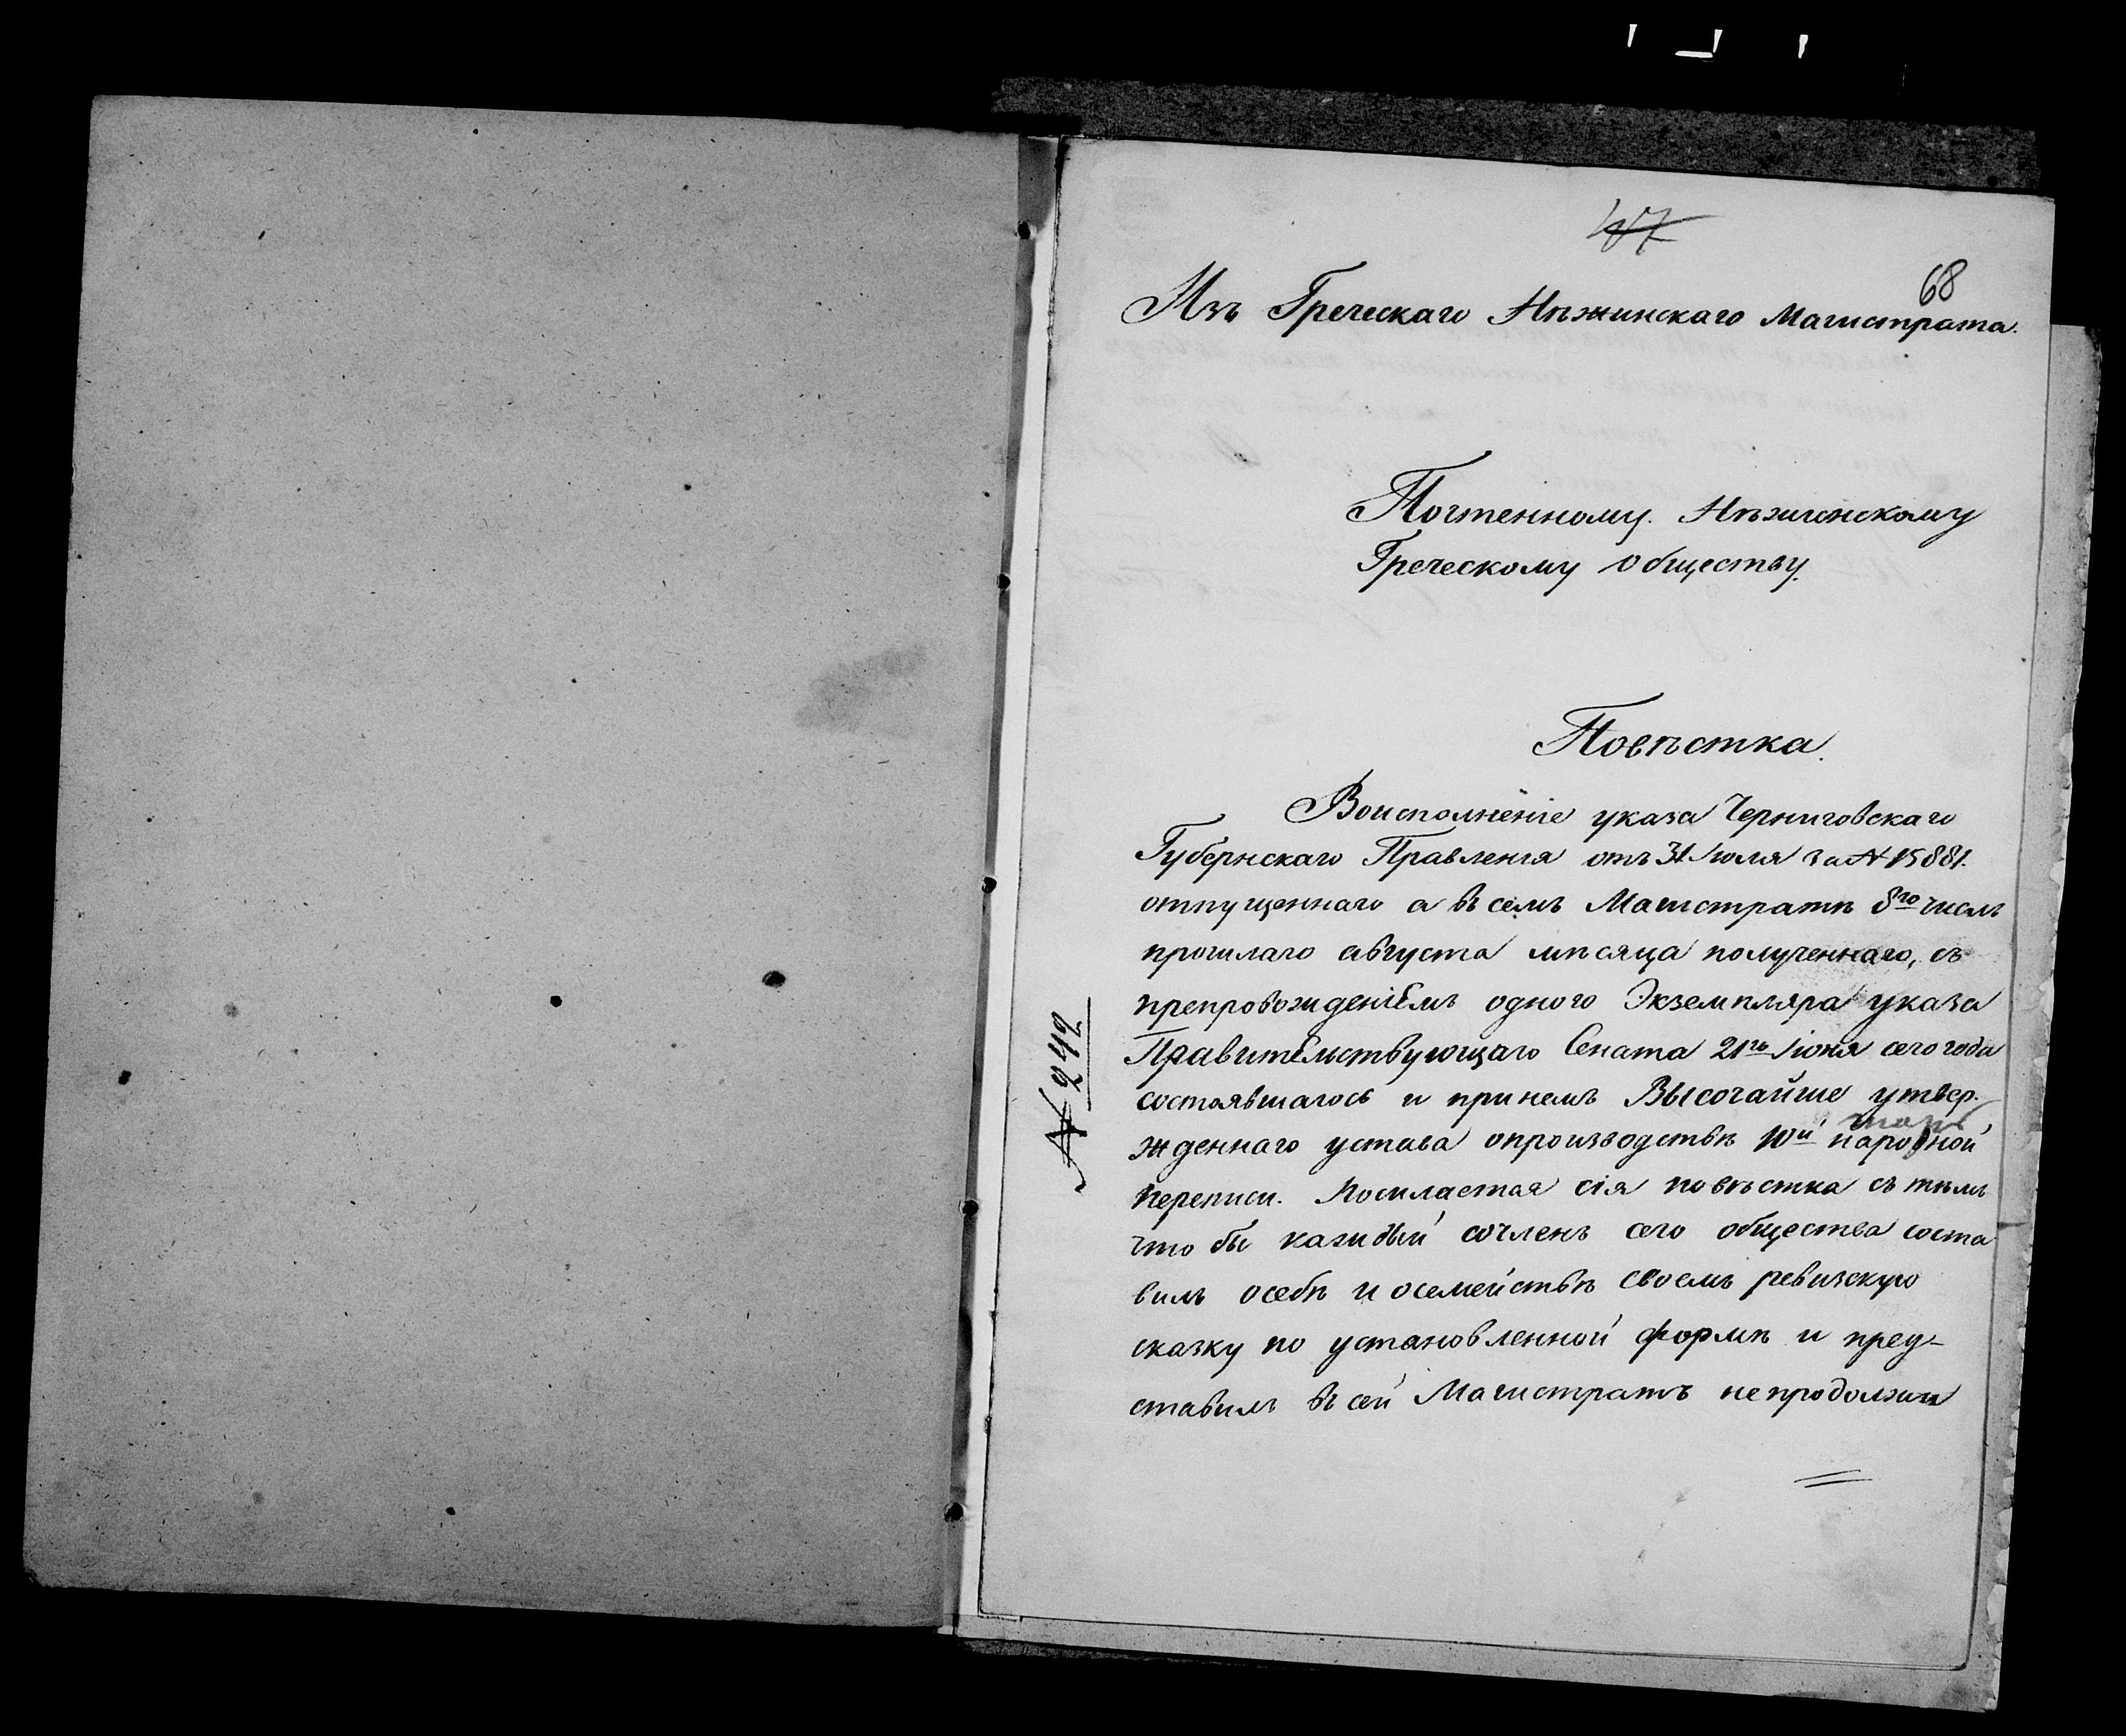 47
68
Изъ Греческаго Нѣжинскаго Магистрата.
Почтенному Нѣжинскому
Греческому обществу.
Повѣстка.
Воисполненіе указа Черниговскаго
Губернскаго Правленія отъ 31 Іюля за № 15881.
отпущеннаго а въ семъ Магистратѣ 8го числъ
прошлаго августа мѣсяца полученнаго, съ
препровожденіемъ одного Экземпляра указа
Правительствующаго Сената 21го Іюня сего года
состоявшагось и при немъ Высочайше утвер.
жденнаго устава опроизводствѣ 10й народной
переписи. Посилается сія повѣстка съ тѣмъ
что бы каждый сочленъ сего общества соста
вилъ осебѣ и осемействѣ своемъ ревизскую
сказку по установленной формѣ и пред-
ставилъ въ сей Магистратъ непродолжи
№ 2442